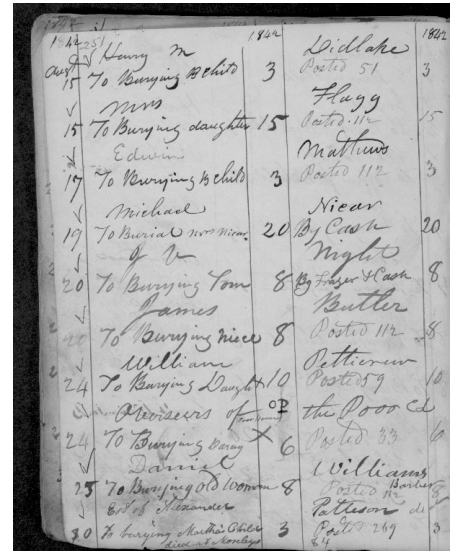 1842 251 1842 1842
Augt Henry M Didlake
15 To Burying B child 3 Posted 51 3
Mrs Flagg
15 To Burying daughter 15 Posted 112 15
Edwin Matthews
17 To Burying B child 3 Posted 112 3
Michael Nicar
19 To Burial Mrs Nicar 20 By Cash 20
J V Night
20 To Burying Tom 8 By Frazer & Cash 8
James Butler
To Burying Niece 8 Posted 112 8
William Petticrew
24 To Burying Daught 10 Posted 59 10
of the Poor Cd
24 To Burying 6 Posted 33 6
Daniel Williams
25 To Burying old Woman 8 Posted 112 Barber 8
Est of Alexander Patteson de
30 To burying Martha's Child 3 Posted 269 3
died at Mosleys 84